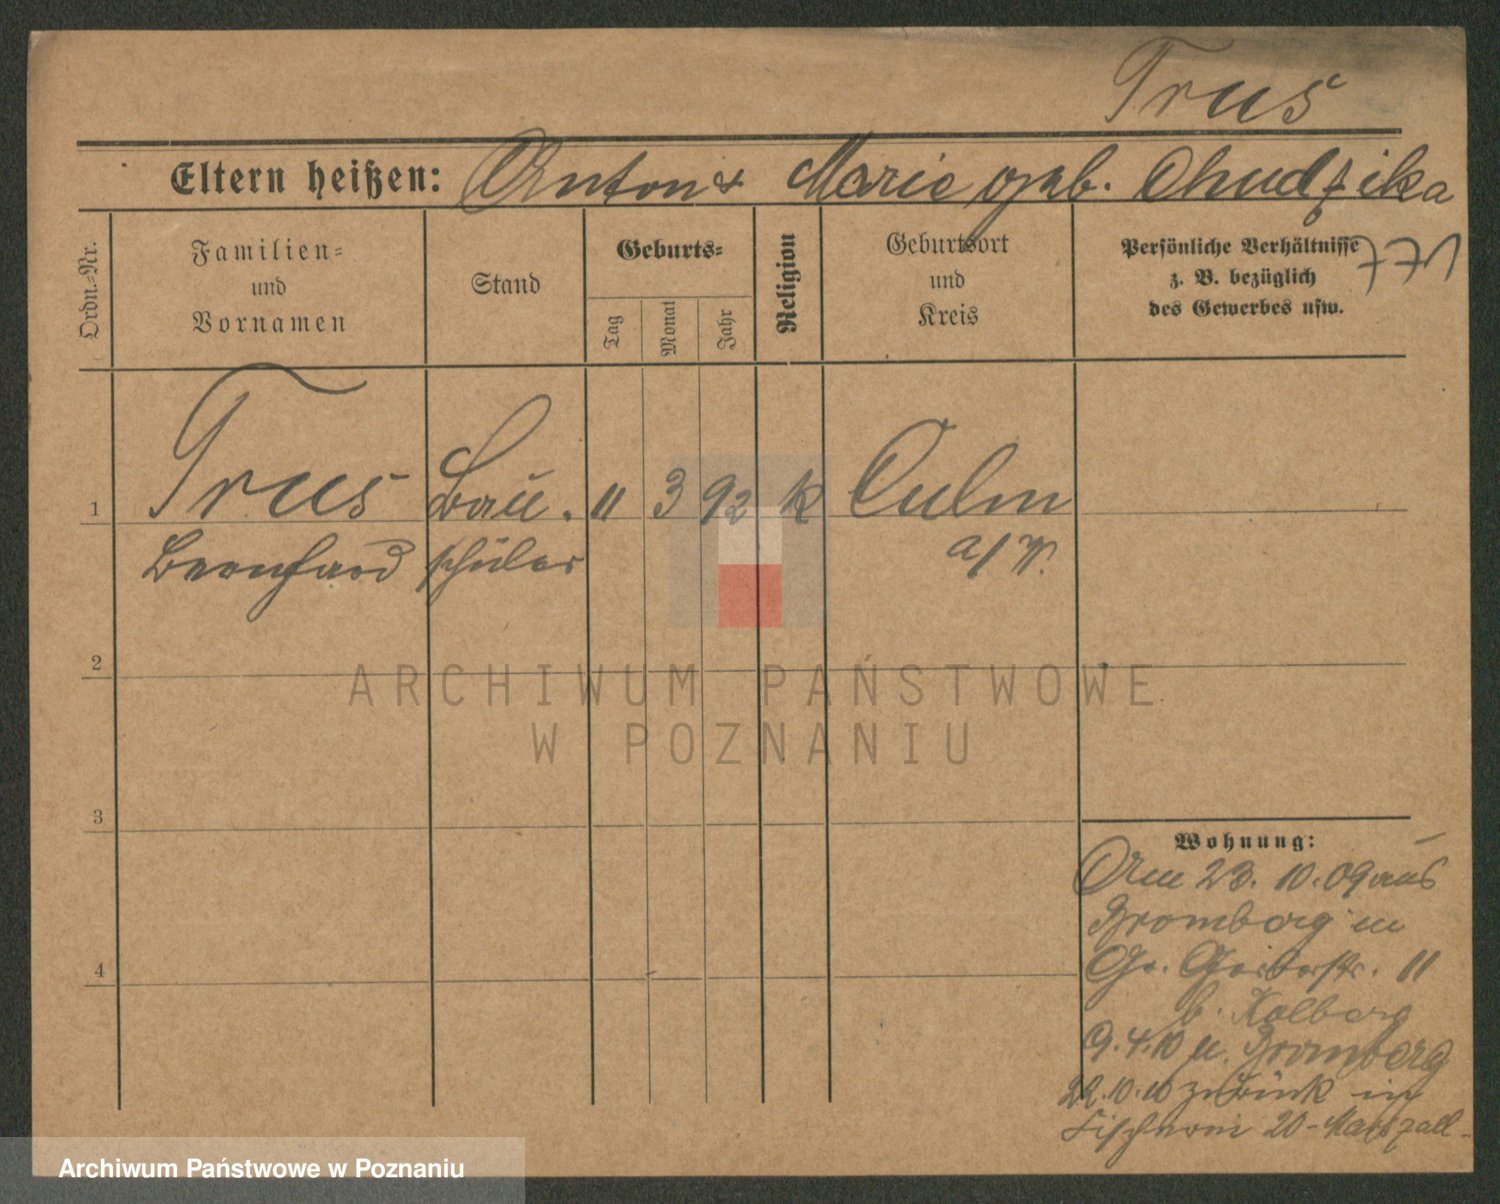 Trus
Eltern heißen: Anton + Marie geb. Chudzika
Ordn.-Nr.
Familien-
und
Vornamen
Stand
Geburts-
Tag
Monat
Jahr
Religion
Geburtsort
und
Kreis
Persönliche Verhältnisse
z. B. bezüglich
des Gewerbes usw.
1
Trus Bau. 11 3 92 k Culm
Bernhard schüler a/W.
2
3
4
Wohnung:
Am 23. 10. 09 aus
Bromberg in
Gr. Gerberstr. 11
b. Kolberg
9.4.10 n. Bromberg
22.10.10 zurück in
Fischerei 20 -
ARCHIWUM PAŃSTWOWE
W POZNANIU
Archiwum Państwowe w Poznaniu